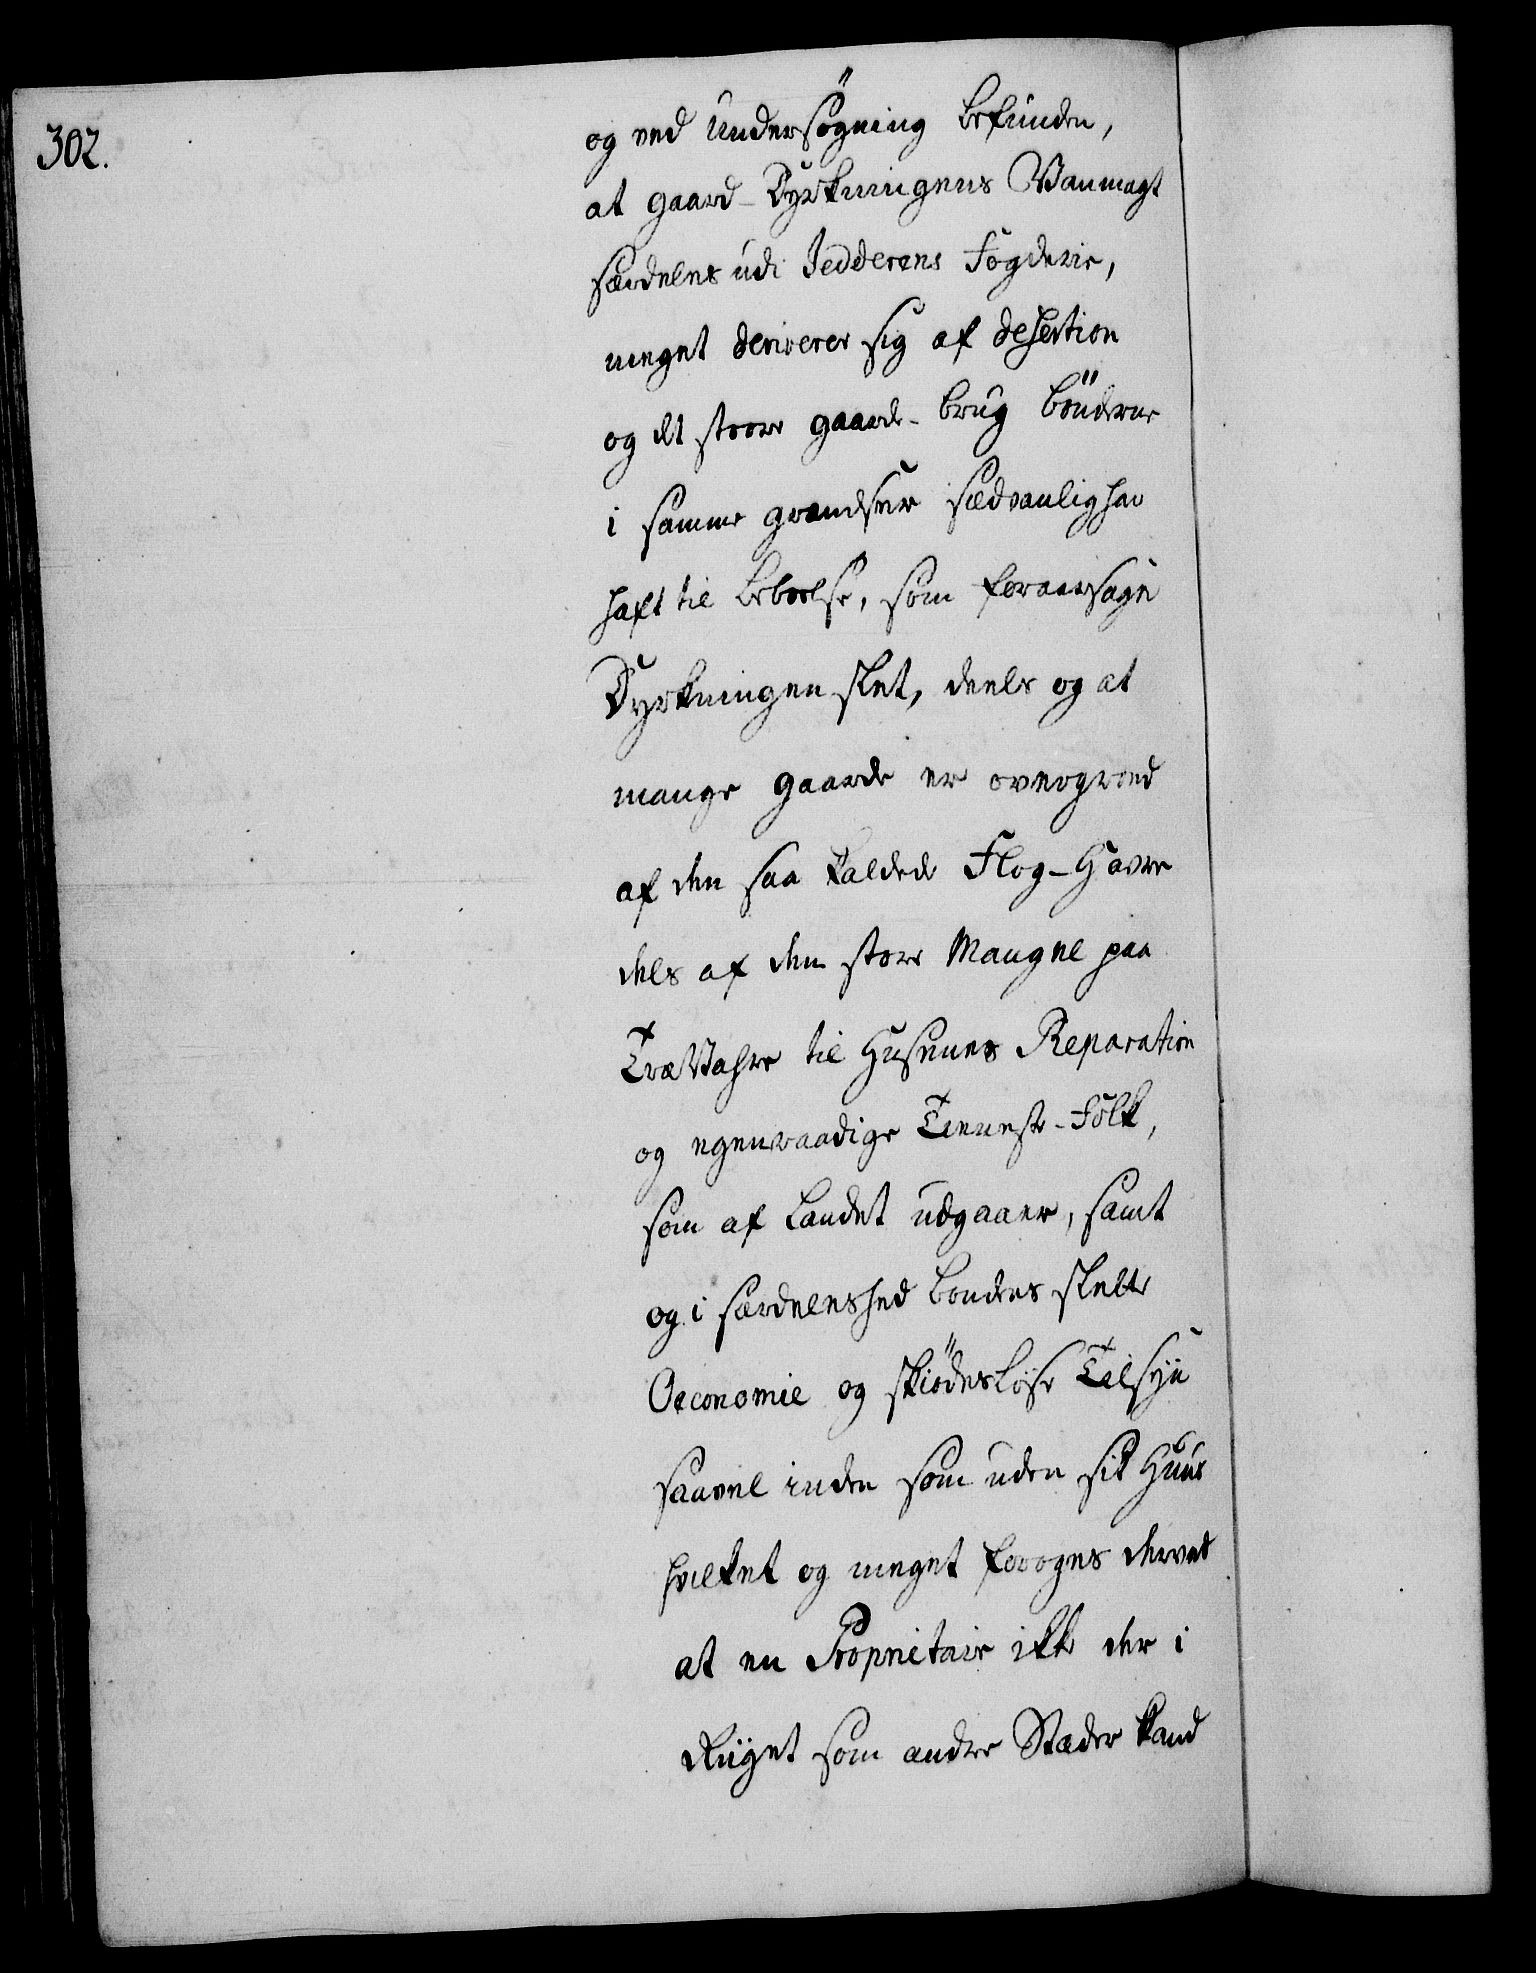 302.
og ved Undersøgning befunden,
at gaard-Dyrkningens Vanmagt
særdeles udi Jedderens Fogderie,
meget deriverer sig af desertion
og det store gaards-brug bönderne
i samme grændser sædvanlig har
haft til beboelse, som foraarsager
Dyrkningen slet, deels og at
mange gaarde er overgroed
af den saa kaldede Flog-Havre
dels af den store Mangel paa
TræVahre til Husenes Reparation
og egenraadige Tieneste-Folk,
som af Landet udgaaer, samt
og i særdeleshed bondens slette
Oeconomie og skiödesløse Tilsyn
saavel inden som uden sit Huus
hvilket og meget foroges derved
at en Proprietair ikke der i
Riiget som andre Stæder kand